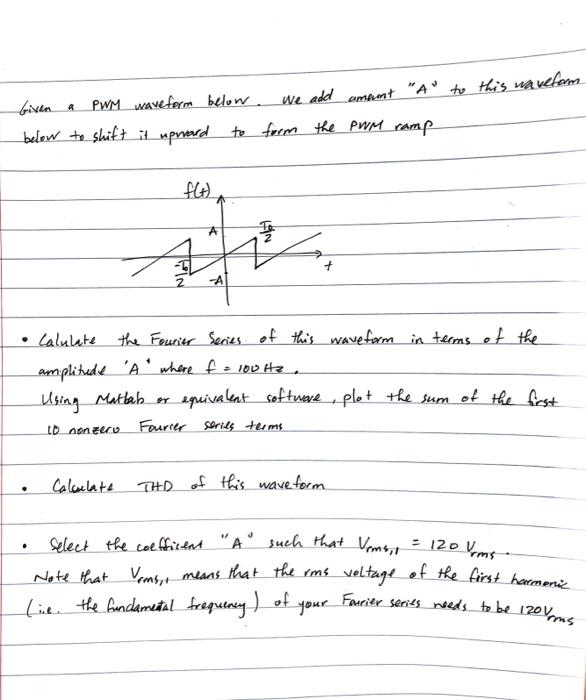 Given a PWM waveform below. We add amount "A" to this waveform
below to shift it upward to form the PWM ramp
f(t)
A
T₀/2
-T₀/2
-A
t
• Calulate the Fourier Series of this waveform in terms of the
amplitude 'A' where f = 100 Hz.
Using Matlab or equivalent software, plot the sum of the first
10 nonzero Fourier series terms
• Calculate THD of this waveform
• Select the coefficent "A" such that Vrms,1 = 120 Vrms.
Note that Vrms,1 means that the rms voltage of the first harmonic
(i.e. the fundamental frequency) of your Fourier series needs to be 120Vrms